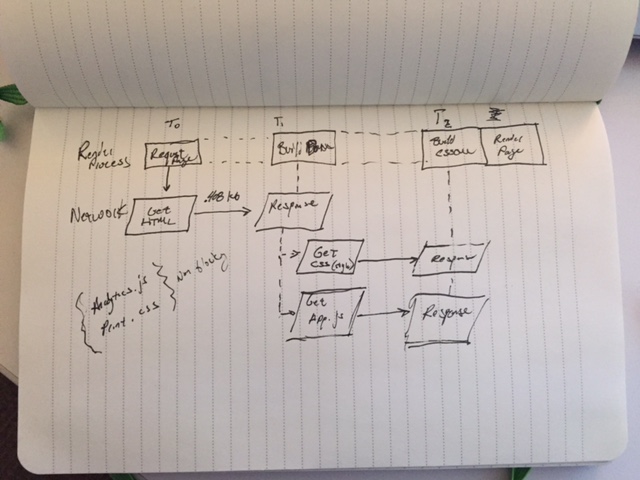 T0
T1
T2
Render
Process
Request
Page
Build
Build
CSSOM
Render
Page
Network
Get
HTML
Response
Get
CSS
Response
Get
App.js
Response
Analytics.js
Print.css